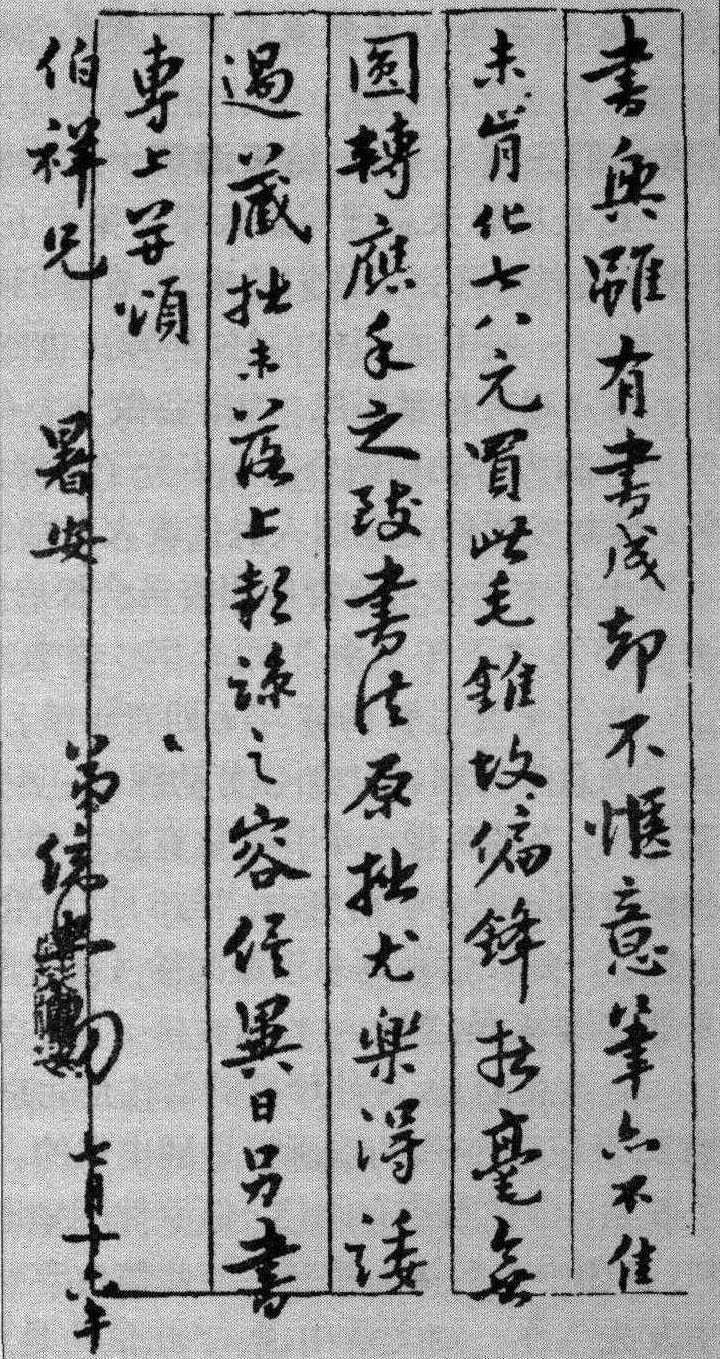 書興雖有書成却不愜意筆亦不佳
未肯化七八元買此毛錐故偏鋒拙毫無
圓轉應手之致書法原拙尤樂得諉
過藏拙未落上款諒之容俟異日另書
專上并頌
伯祥兄 暑安
弟 七月十六午